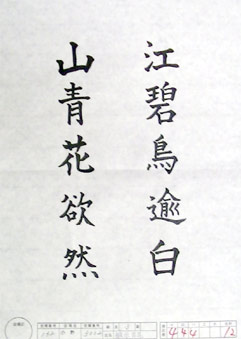 江碧鳥逾白
山青花欲然
444
12